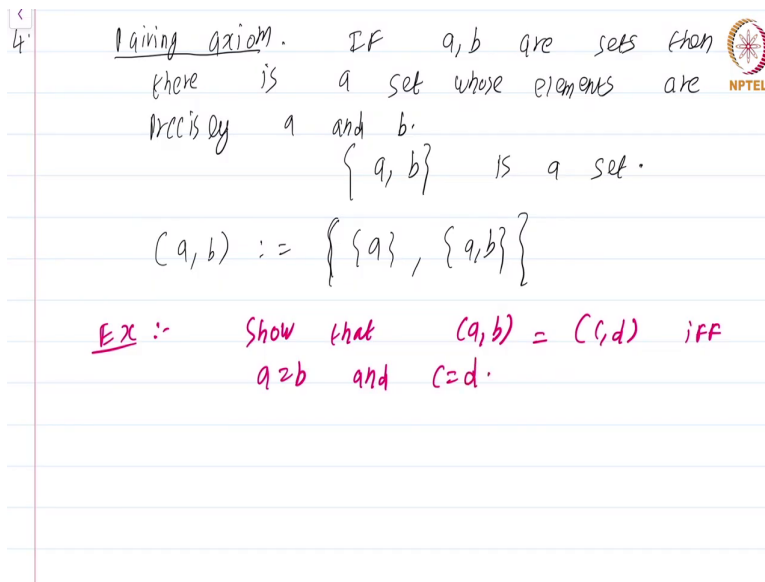 4. Pairing axiom. If a, b are sets then
there is a set whose elements are
NPTEL
precisely a and b.
{a, b} is a set.
(a, b) := {{a}, {a,b}}
Ex :- Show that (a,b) = (c,d) iff
a=b and c=d.